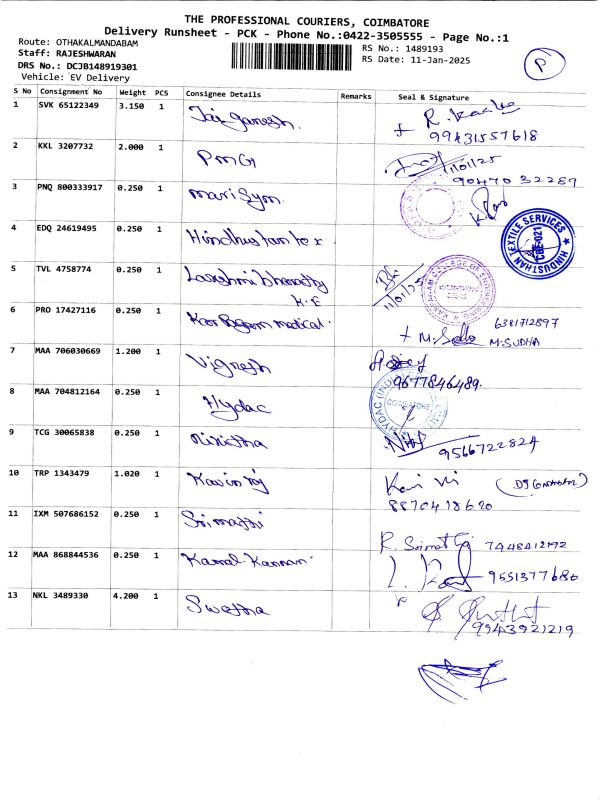 THE PROFESSIONAL COURIERS, COIMBATORE
Delivery Runsheet - PCK - Phone No.:0422-3505555 - Page No.:1
Route: OTHAKALMANDABAM
Staff: RAJESHWARAN
DRS No.: DCJB148919301
Vehicle: EV Delivery
RS No.: 1489193
RS Date: 11-Jan-2025
P
S No Consignment No Weight PCS Consignee Details Remarks Seal & Signature
1 SVK 65122349 3.150 1 Jai ganesh.
99431557618
2 KKL 3207732 2.000 1 PMG
11/01/25
90470 32289
3 PNQ 800333917 0.250 1 Mari Sym
4 EDQ 24619495 0.250 1 Hindhustan tex
HINDUSTHAN TEXTILE SERVICES
CBE-021
5 TVL 4758774 0.250 1 Lakshmi bharathy
K.E
11/01/25
6 PRO 17427116 0.250 1 Karpagam medical
6381712897
M.SUDHA
7 MAA 706030669 1.200 1 Vignesh
9677846489.
8 MAA 704812164 0.250 1 Hydac
HYDAC (INDIA)
COIMBATORE
9 TCG 30065838 0.250 1 Nikitha
9566722824
10 TRP 1343479 1.020 1 Kavin raj
8870418620
11 IXM 507686152 0.250 1 Srimathi
R. Srimathi 7448412192
12 MAA 868844536 0.250 1 Kamal Kannan
9551377680
13 NKL 3489330 4.200 1 Swetha
9943921219